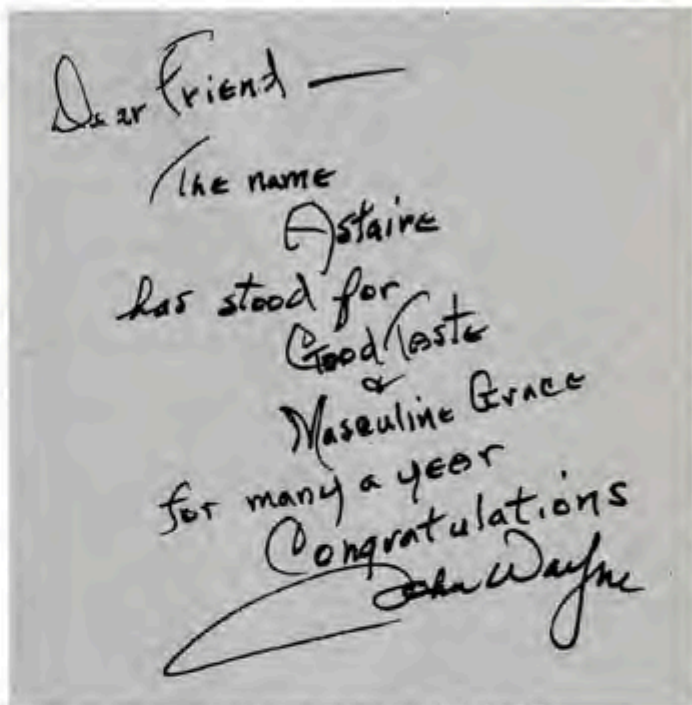 Dear Friend —
The name
Astaire
has stood for
Good Taste
&
Masculine Grace
for many a year
Congratulations
John Wayne